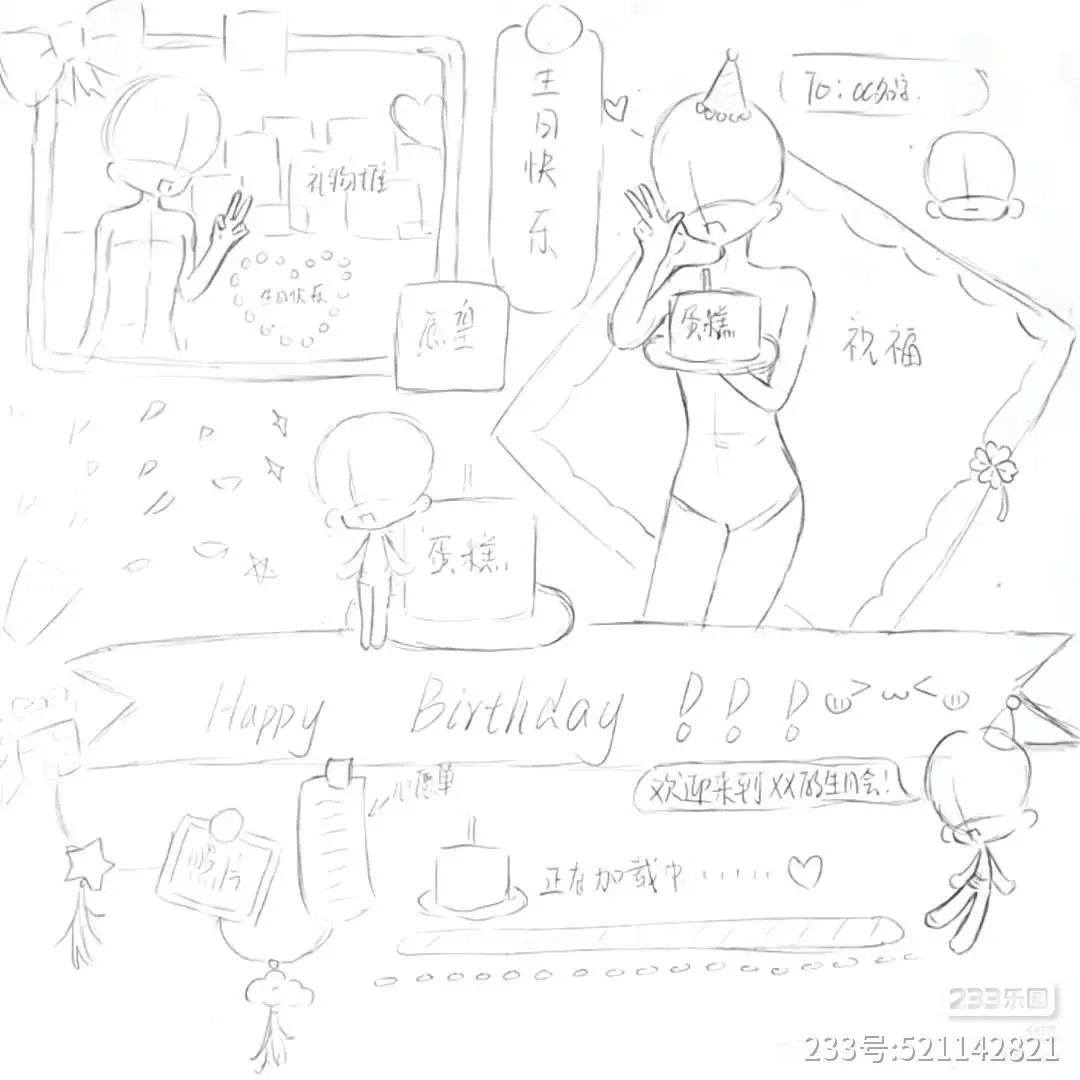 生日快乐
To:
礼物堆
生日快乐
蛋糕
祝福
蛋糕
Happy Birthday!!!
欢迎来到XX的生日会!
心愿单
照片
正在加载中······
233乐园
233号:521142821